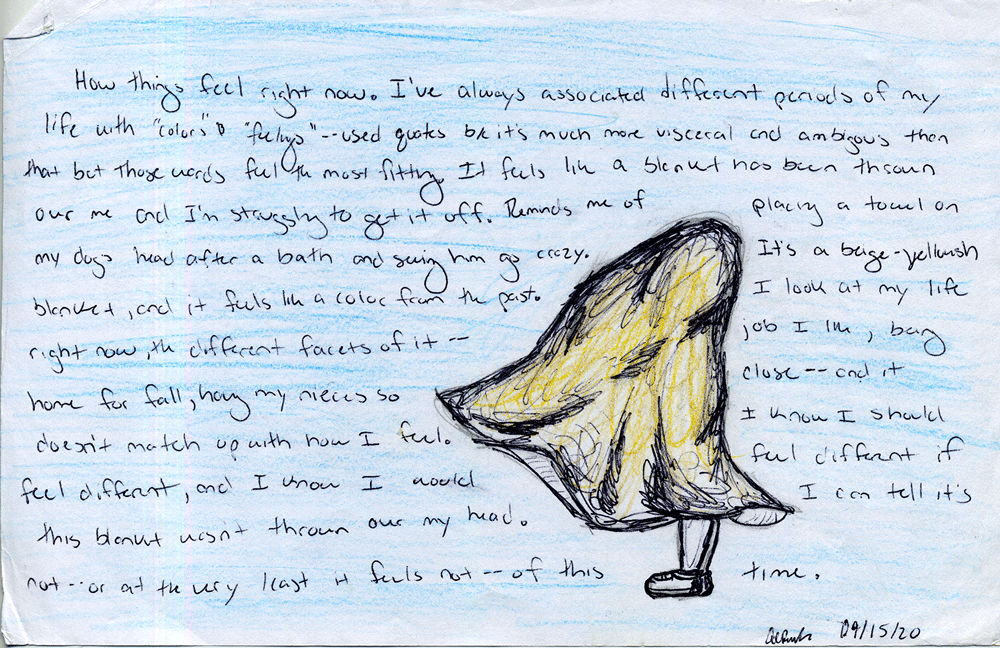 How things feel right now. I've always associated different periods of my
life with "colors" & "feelings" -- used quotes b/c it's much more visceral and ambigous then
that but those words feel the most fitting. It feels like a blanket has been thrown
over me and I'm struggling to get it off. Reminds me of placing a towel on
my dogs head after a bath and seeing him go crazy. It's a beige-yellowish
blanket, and it feels like a color from the past. I look at my life
right now, the different facets of it -- job I like, being
home for fall, having my nieces so close -- and it
doesn't match up with how I feel. I know I should
feel different, and I know I would feel different if
this blanket wasn't thrown over my head. I can tell it's
not -- or at the very least it feels not -- of this time.
09/15/20